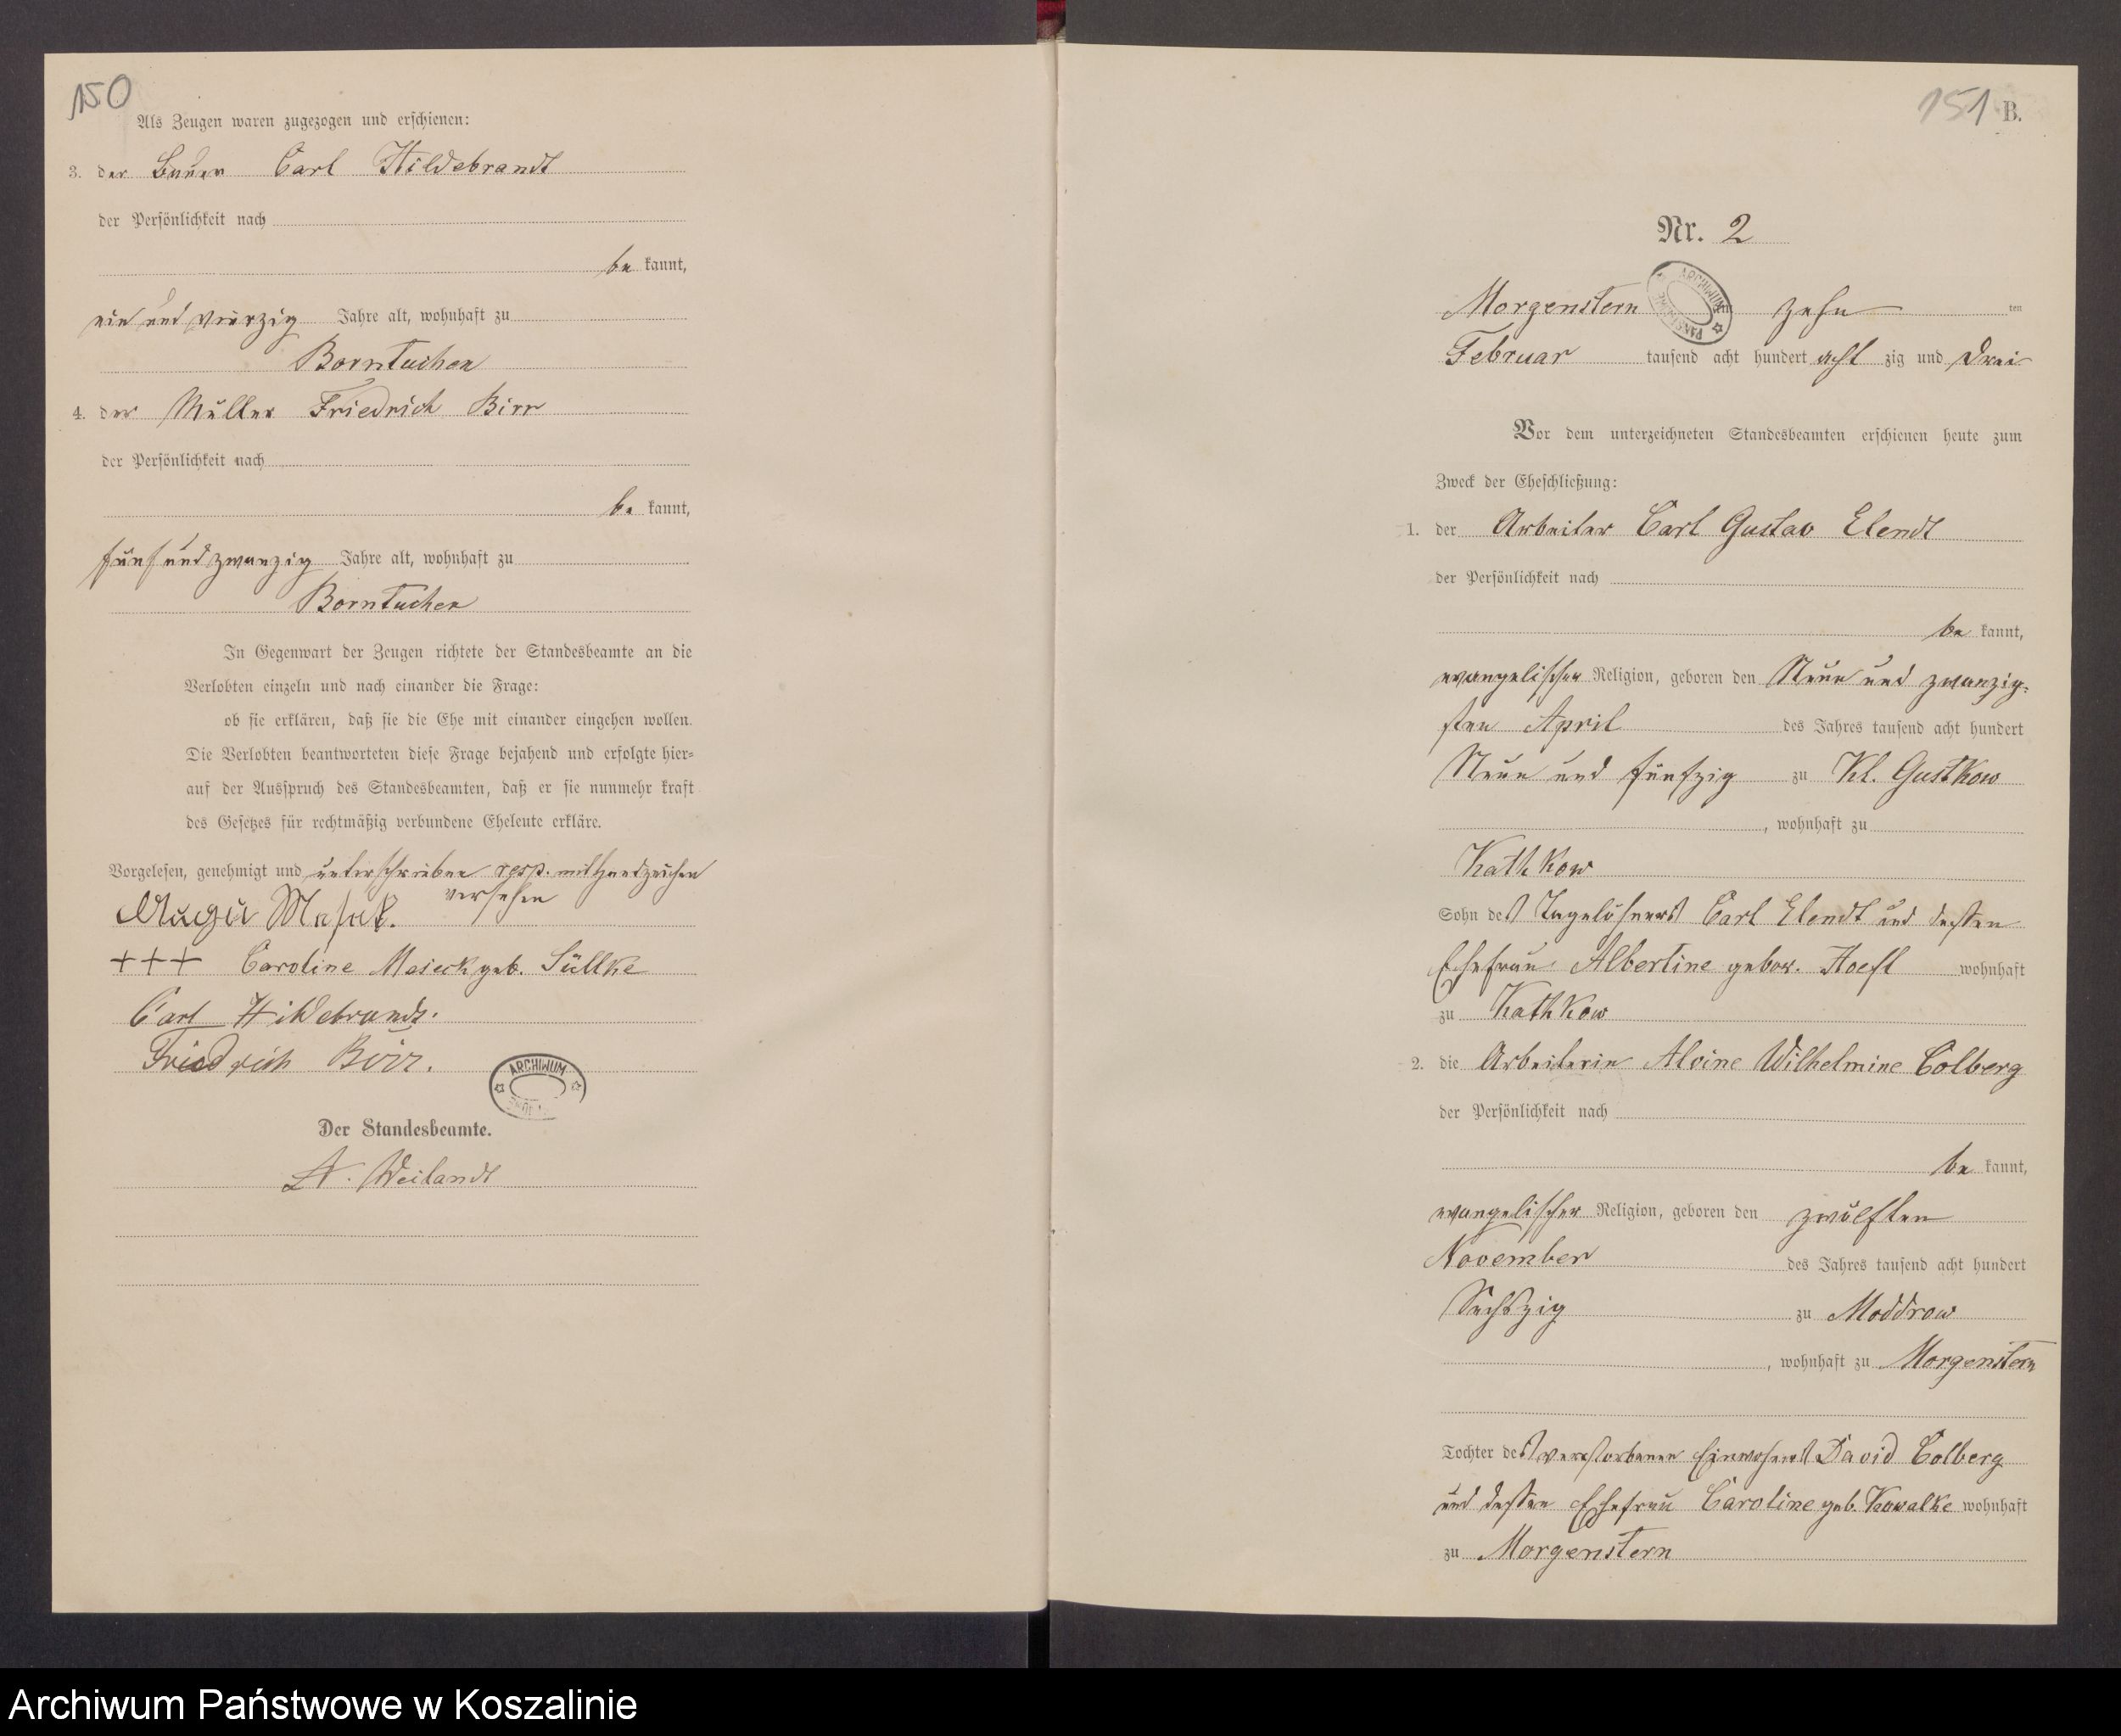 150
Als Zeugen waren zugezogen und erschienen:
3. der Bauer Carl Hildebrandt
der Persönlichkeit nach
be kannt,
ein und vierzig Jahre alt, wohnhaft zu
Borntuchen
4. der Müller Friedrich Birr
der Persönlichkeit nach
be kannt,
fünf und zwanzig Jahre alt, wohnhaft zu
Borntuchen
In Gegenwart der Zeugen richtete der Standesbeamte an die
Verlobten einzeln und nach einander die Frage:
ob sie erklären, daß sie die Ehe mit einander eingehen wollen.
Die Verlobten beantworteten diese Frage bejahend und erfolgte hier=
auf der Ausspruch des Standesbeamten, daß er sie nunmehr kraft
des Gesetzes für rechtmäßig verbundene Eheleute erkläre.
Vorgelesen, genehmigt und unterschrieben resp. mit Handzeichen
versehen
+++ Caroline Maseck geb. Süllke
Carl Hildebrandt.
Friedrich Birr.
ARCHIWUM
Der Standesbeamte.
A. Weilandt
151 B.
Nr. 2
Morgenstern am zehn ten
ARCHIWUM
Februar tausend acht hundert acht zig und drei
Vor dem unterzeichneten Standesbeamten erschienen heute zum
Zweck der Eheschließung:
1. der Arbeiter Carl Gustav Elendt
der Persönlichkeit nach
be kannt,
evangelischer Religion, geboren den Neun und zwanzig-
sten April des Jahres tausend acht hundert
Neun und fünfzig zu Kl. Gustkow
, wohnhaft zu
Kathkow
Sohn des Tagelöhners Carl Elendt und dessen
Ehefrau Albertine gebor. Hoeft wohnhaft
zu Kathkow
2. die Arbeiterin Alvine Wilhelmine Colberg
der Persönlichkeit nach
be kannt,
evangelischer Religion, geboren den zwölften
November des Jahres tausend acht hundert
Sechszig zu Moddrow
, wohnhaft zu Morgenstern
Tochter des verstorbenen Einwohners David Colberg
und dessen Ehefrau Caroline geb. Kowalke wohnhaft
zu Morgenstern
Archiwum Państwowe w Koszalinie